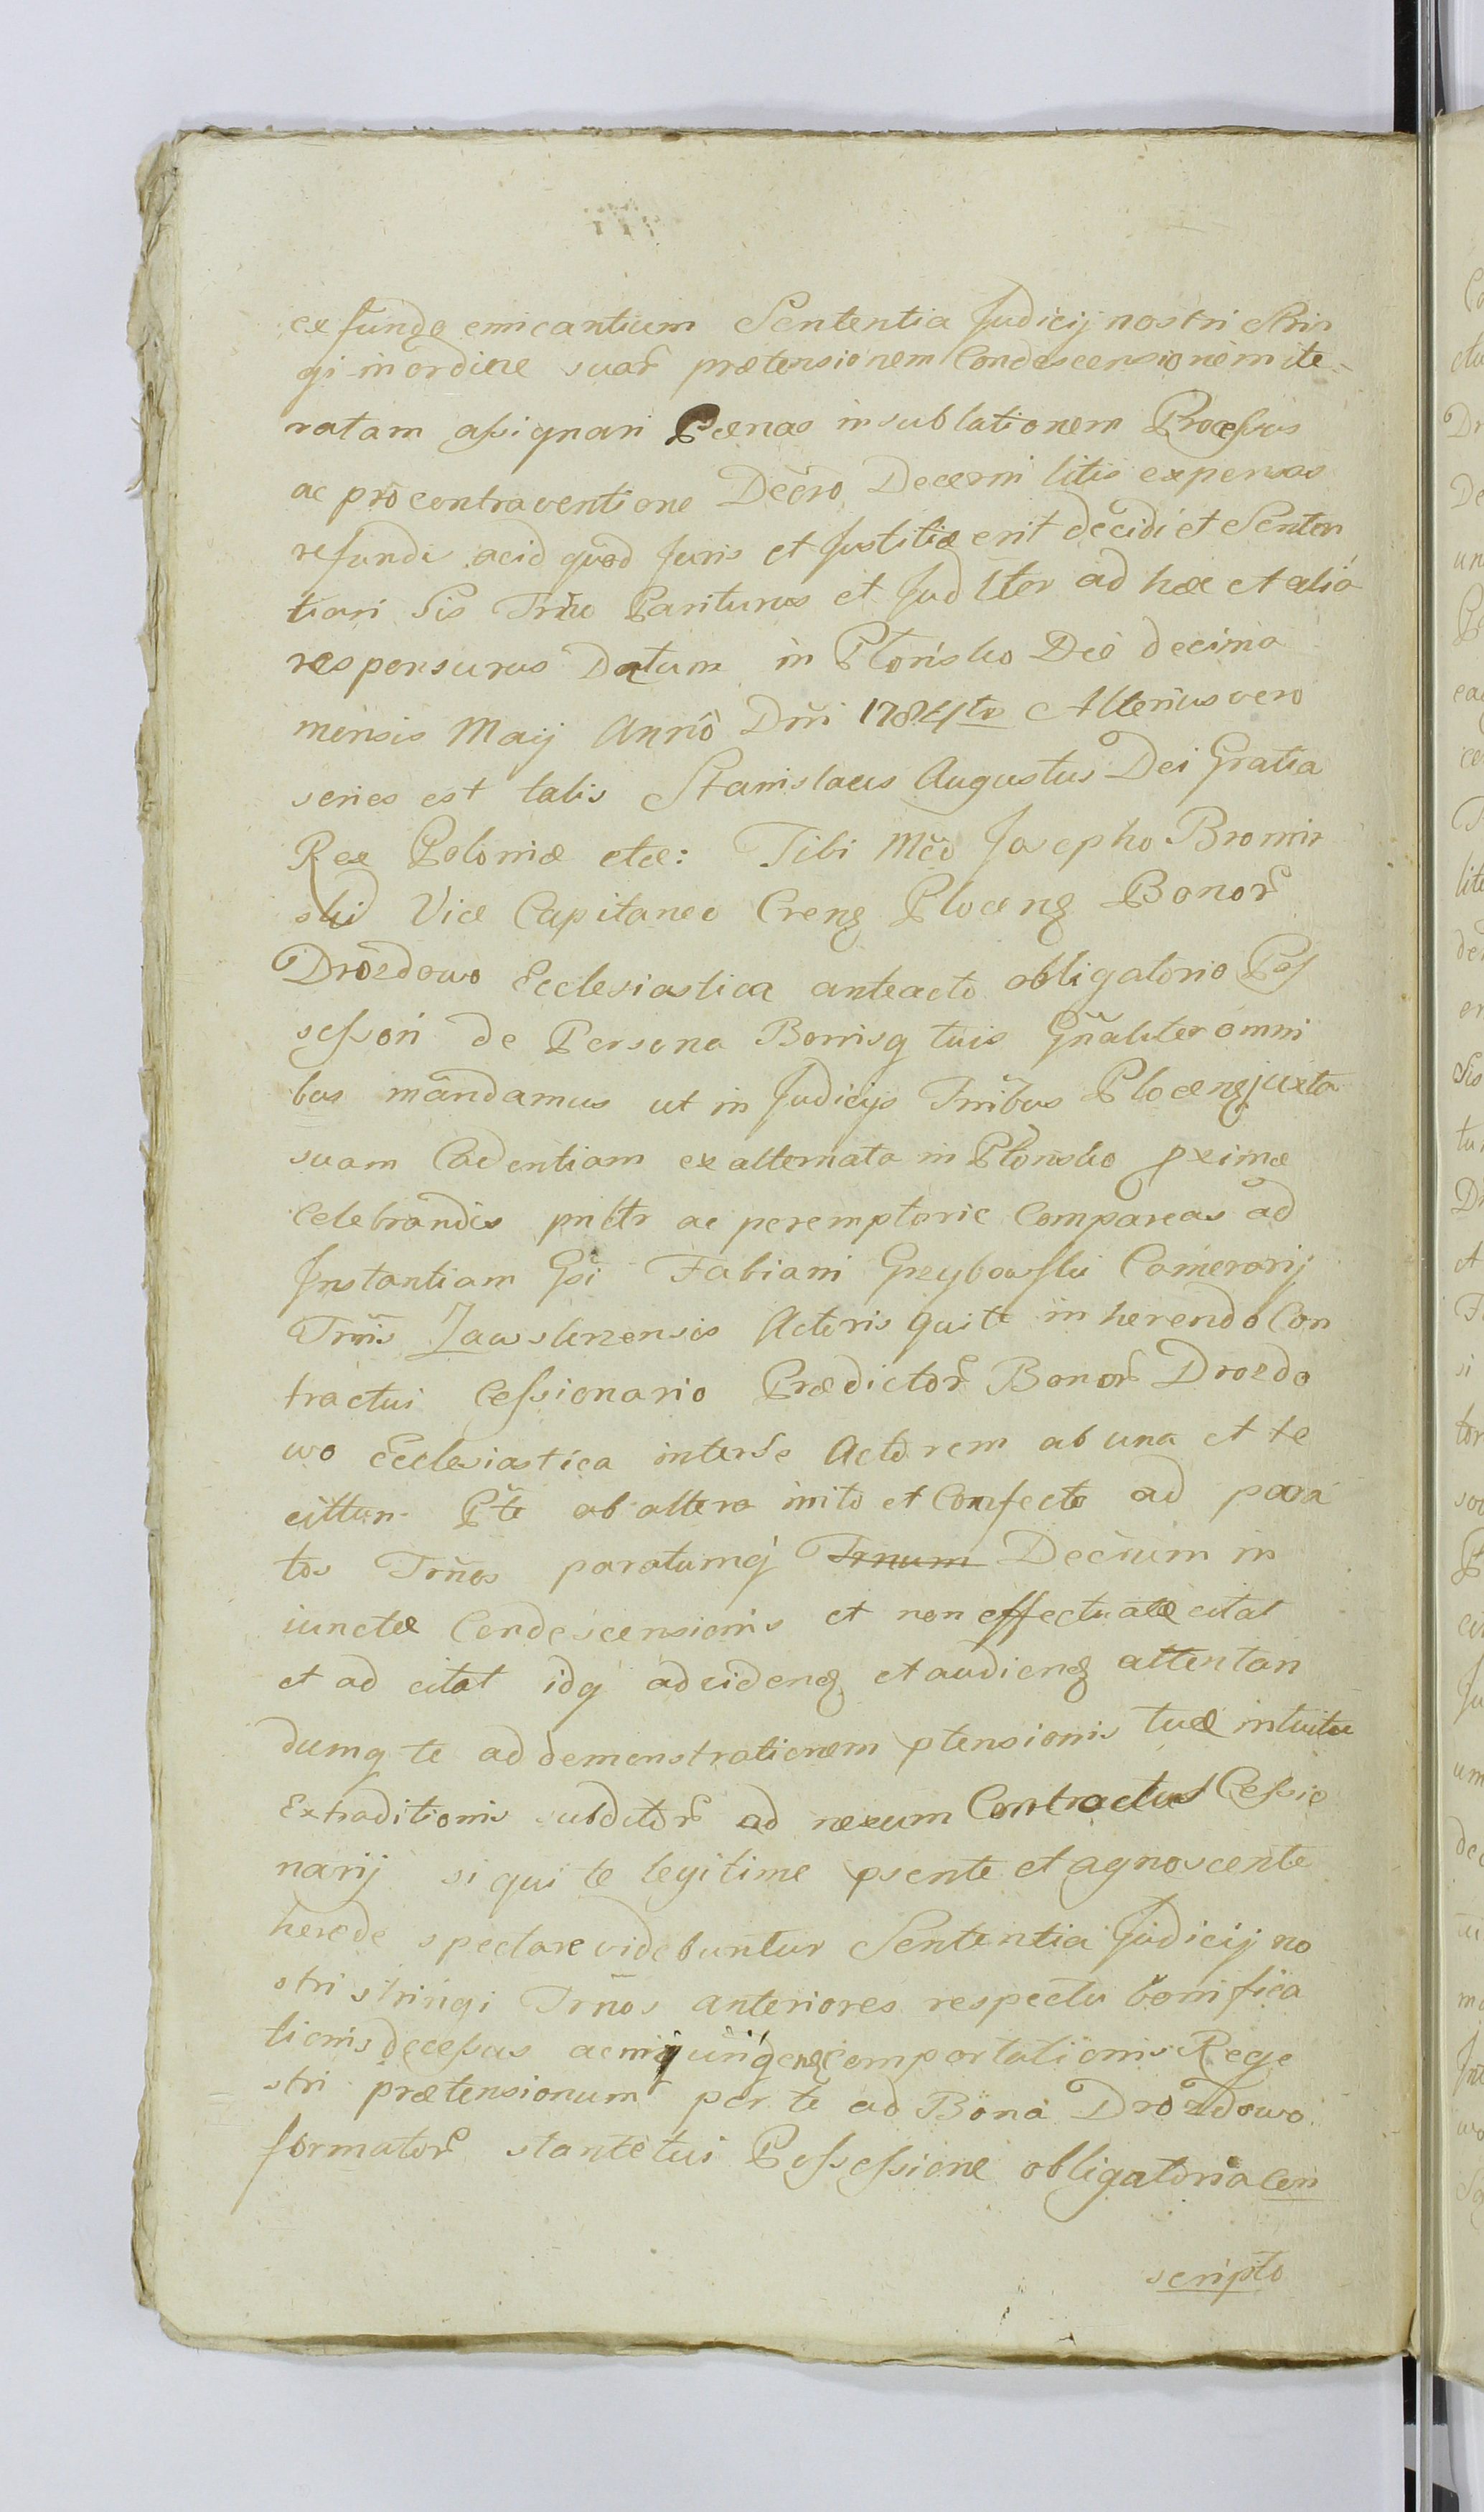 ex fundo emicantium Sententia Judicij nostri Strin
gi in ordine suar prætensionem Condescensionem ite-
ratam assignari Pænas in sublationem Processus
ac pro contraventione Decro Decerni litis expensas
refundi acid quod Juris et Justitiæ erit decidi et Senten
tiari Sis Trño Pariturus et Jud lter ad hæc et alia
responsurus Datum in Płońsko Die decima
mensis Maij Anno Dñi 1784to Alterius vero
series est talis Stanislaus Augustus Dei Gratia
Rex Poloniæ etc: Tibi Mco Josepho Bromir
ski Vice Capitaneo Creng Ploceng Bonor
Drozdowo Ecclesiastica anteacto obligatorio Pos
sessori de Persona Bonisq tuis Gñaliter omni
bus mandamus ut in Judicijs Trribus Ploceng juxta
suam Cadentiam ex alternata in Płonsko pximæ
Celebrandis pnltr ac peremptorie Compareas ad
Instantiam Gsi Fabiani Grzybowski Camerarij
Trris Zawskrzensis Actoris qui te in herendo Con
tractui Cessionario Prædictor Bonor Drozdo
wo Ecclesiastica inter se Actorem ab una et te
cittum Pte ab altera inito et Confecto ad para
tos Trños paratumq Trnum Decrum in
iunctæ Condescensionis et non effectuatæ citat
et ad citat idq ad videng et audieng attentan
dumq te ad demonstrationem ptensionis tuæ intuitu
Extraditionis subditor ad nexum Contractus Cessio
narij si qui te legitime psente et agnoscente
herede spectare videbuntur Sententia Judicij no
stri stringi Trños anteriores respectu bonifica
tionis decessus ac injungeng Comportationis Rege
stri prætensionum per te ad Bona Drozdowo
formator stante tui Possessione obligatoria Con
scripto